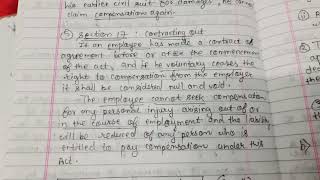 his earlier civil suit for damages, he can
claim compensation again.
5) Section 17 : Contracting out
If an employee has made a contract of
agreement before or after the commencement
of the act, and if he voluntary ceases the
right to compensation from the employer
it shall be considered null and void.
The employee cannot seek compensation
for any personal injury arising out of or
in the course of employment and the liability
will be reduced of any person who is
entitled to pay compensation under this
Act.